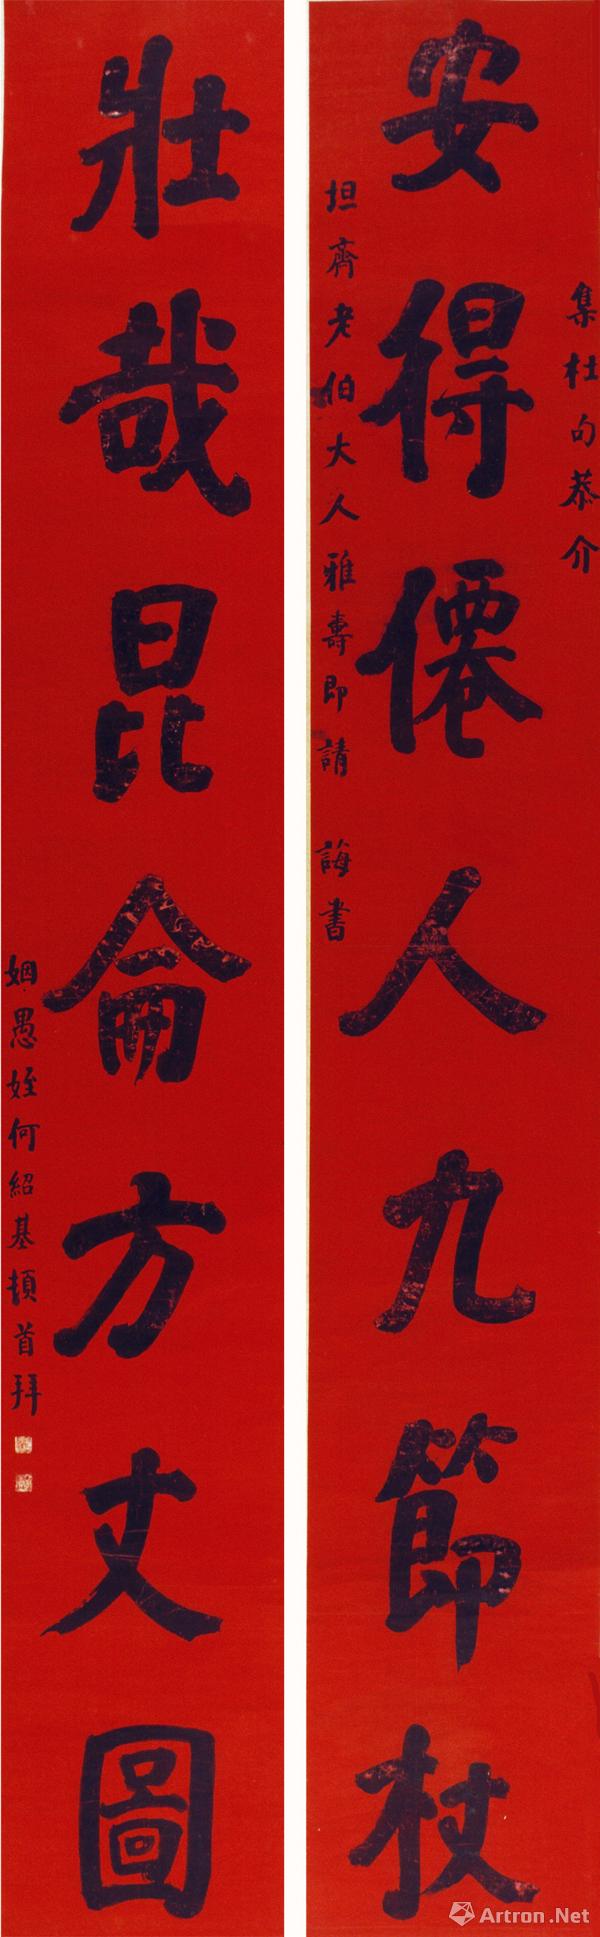 集杜句恭介
安得僊人九節杖
坦齋老伯大人雅壽即請 誨書
壯哉昆侖方丈圖
姻愚姪何紹基頓首拜
Artron.Net